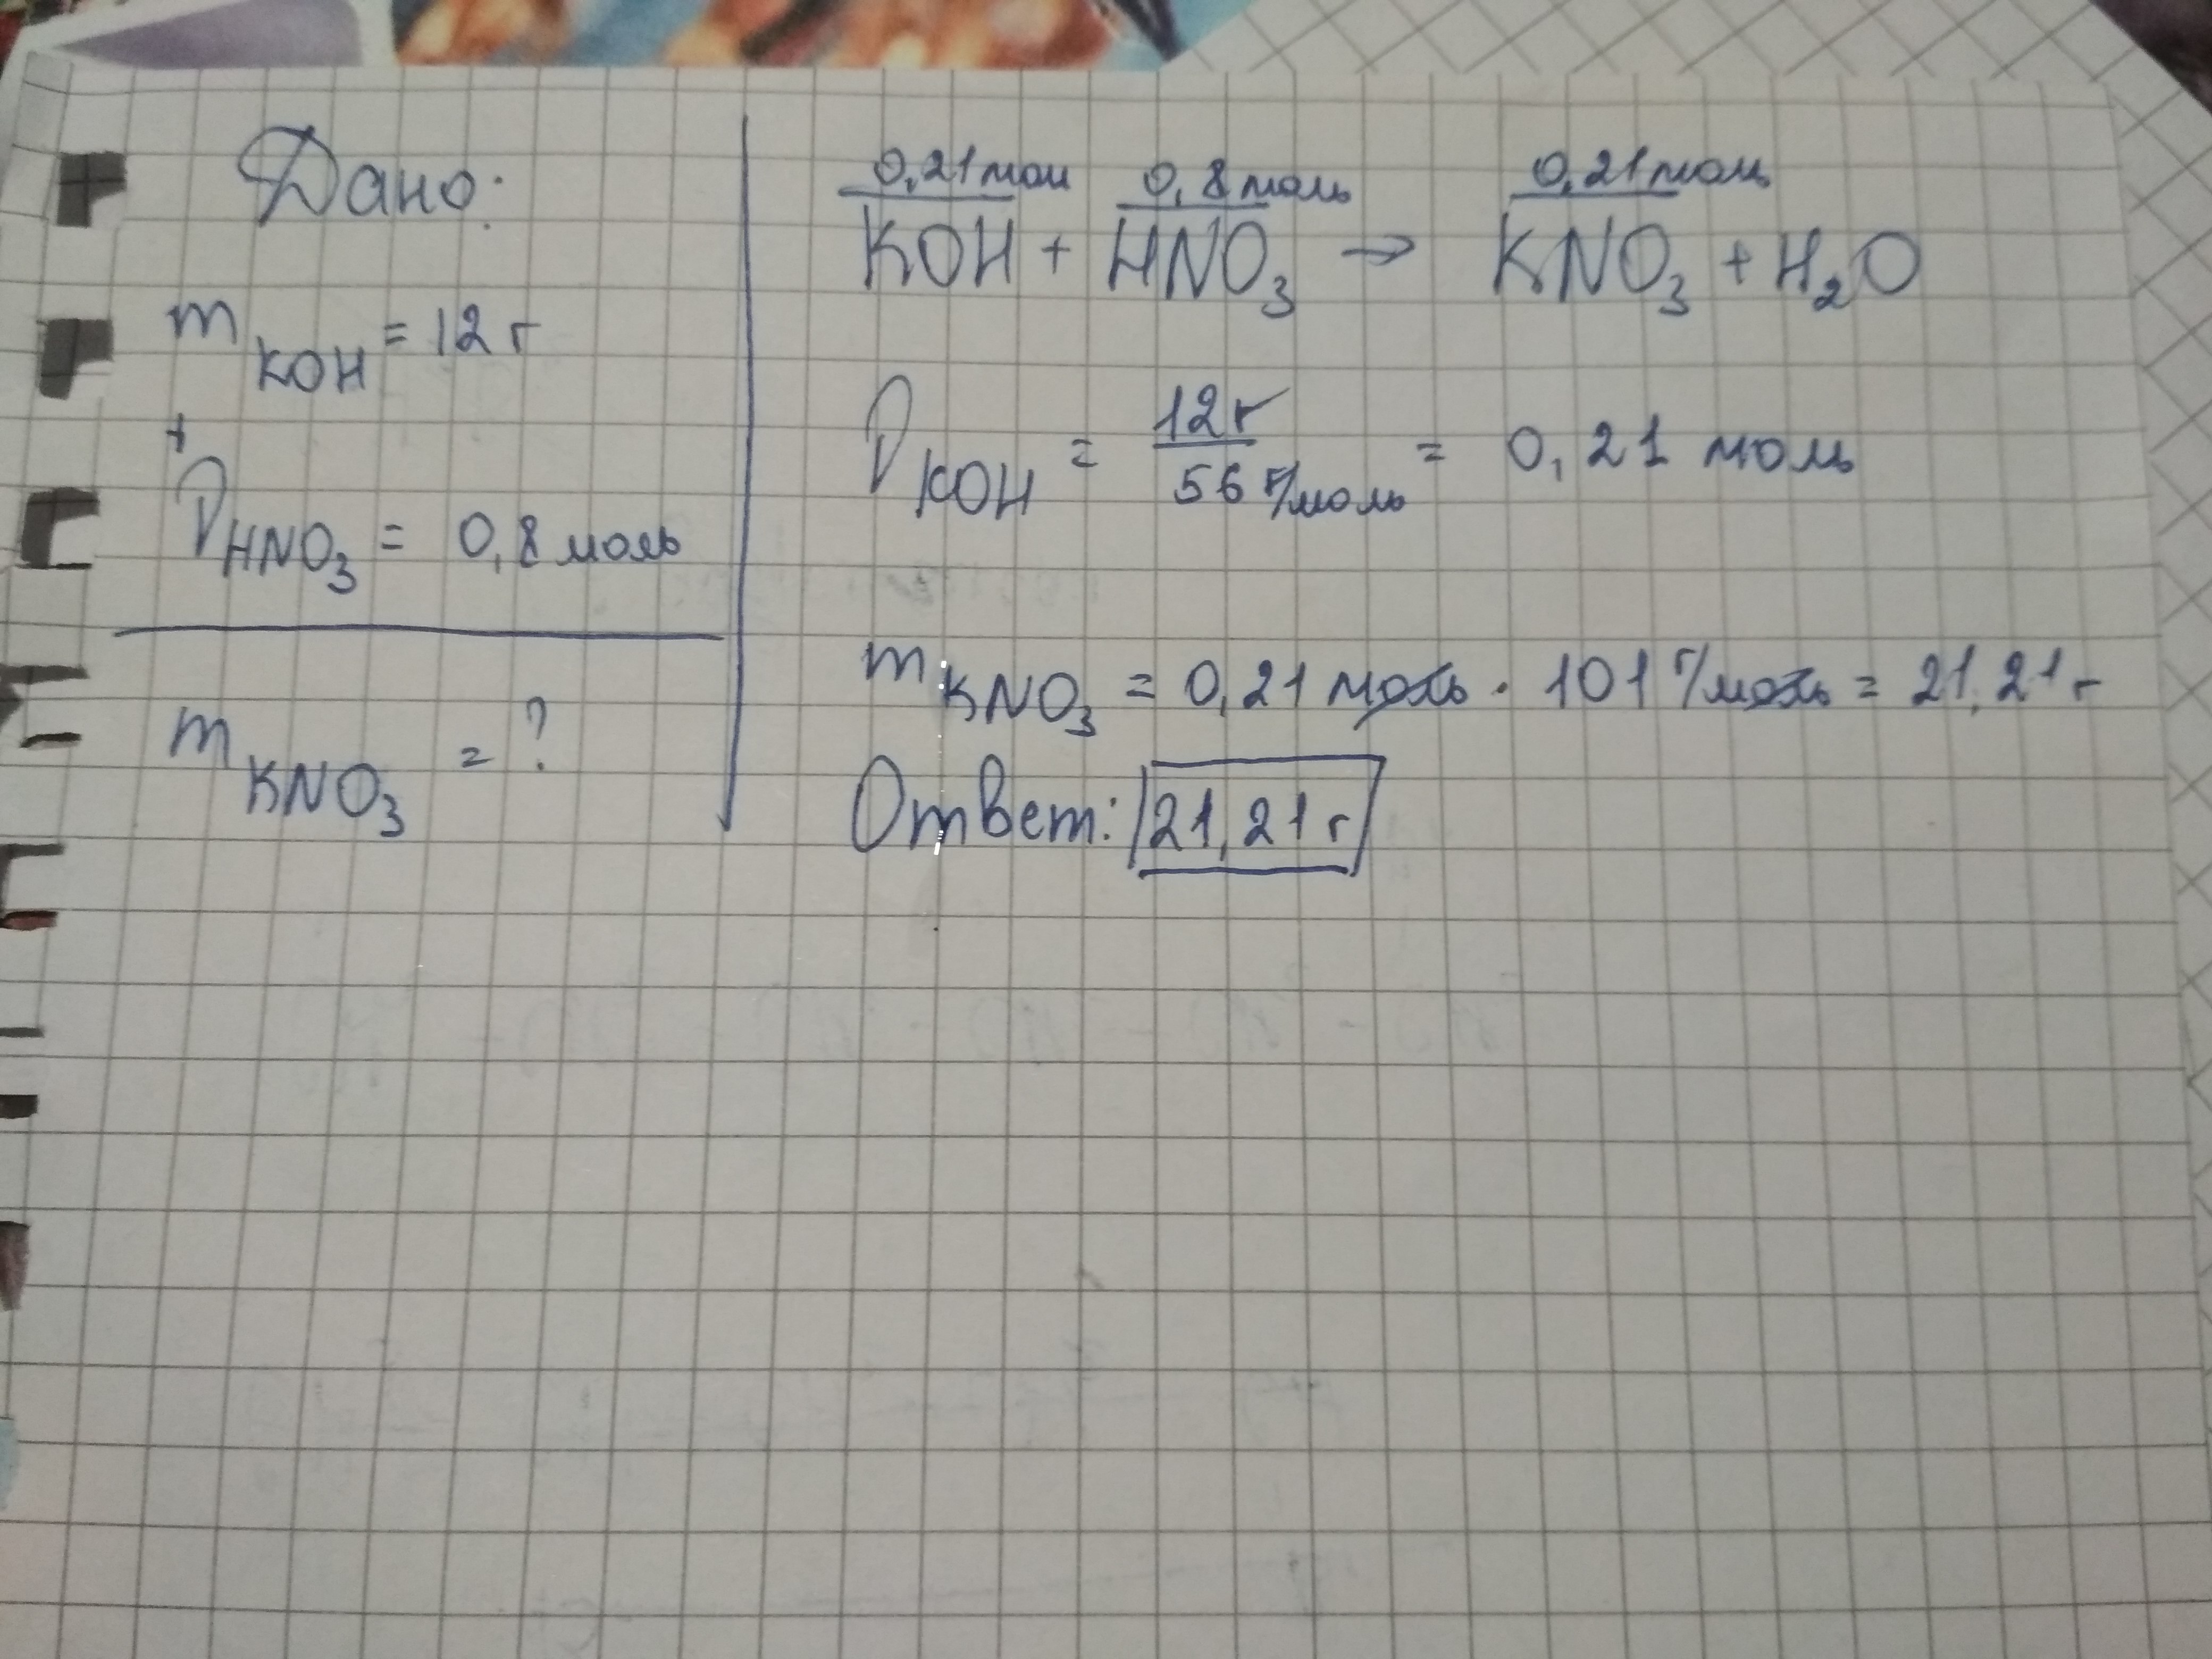 Дано:
m KOH = 12 г
+
ν HNO₃ = 0,8 моль
m KNO₃ = ?
0,21 мол 0,8 моль 0,21 моль
KOH + HNO₃ → KNO₃ + H₂O
ν KOH = 12г / 56 г/моль = 0,21 моль
m KNO₃ = 0,21 моль · 101 г/моль = 21,21 г
Ответ: 21,21 г